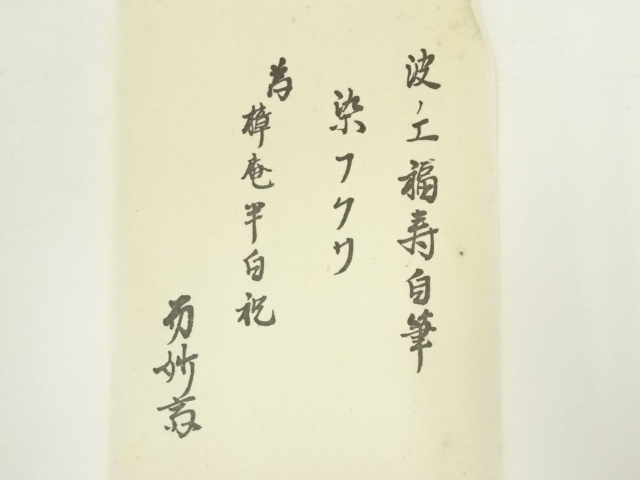 波ノエ福寿自筆
染フクサ
為樟庵半白祝
妙斎